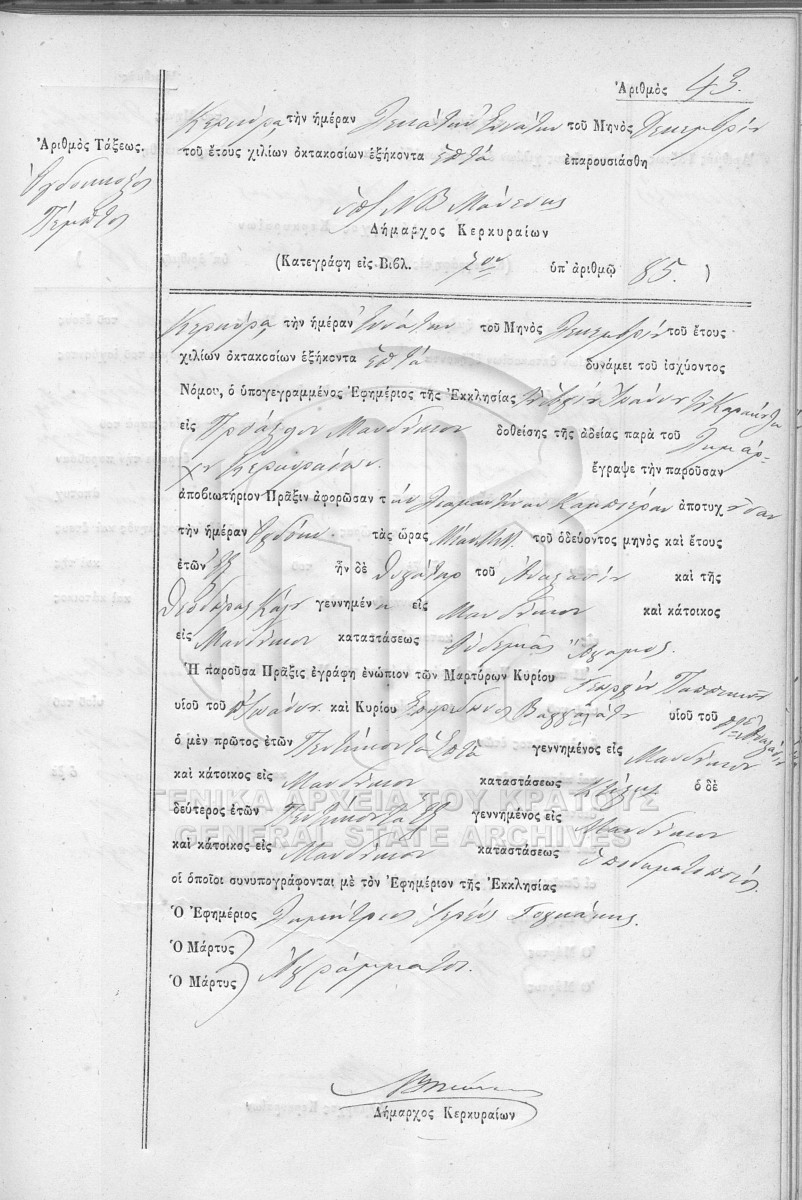 Ἀριθμὸς 43.
Ἀριθμὸς Τάξεως.
Ὀγδοηκοστὸς
Πέμπτος
Κερκύρᾳ τὴν ἡμέραν Δεκάτην Ἐννάτην τοῦ Μηνὸς Δεκεμβρίου
τοῦ ἔτους χιλίων ὀκτακοσίων ἑξήκοντα Ἑπτὰ ἐπαρουσιάσθη
Ν Β Μάνεσης
Δήμαρχος Κερκυραίων
(Κατεγράφη εἰς Βιβλ. 7ον ὑπ' ἀριθμῷ 85. )
Κερκύρᾳ τὴν ἡμέραν Ἐννάτην τοῦ Μηνὸς Δεκεμβρίου τοῦ ἔτους
χιλίων ὀκτακοσίων ἑξήκοντα Ἑπτὰ δυνάμει τοῦ ἰσχύοντος
Νόμου, ὁ ὑπογεγραμμένος Ἐφημέριος τῆς Ἐκκλησίας Ἁγίου Ἰωάννου
εἰς Προάστιον Μανδούκιον δοθείσης τῆς ἀδείας παρὰ τοῦ Δημάρ-
χου Κερκυραίων ἔγραψε τὴν παροῦσαν
ἀποβιωτήριον Πρᾶξιν ἀφορῶσαν τὴν Διαμαντίναν ἀποτυχοῦσαν
τὴν ἡμέραν Ὀγδόην τὰς ὥρας Μίαν Μ.Μ. τοῦ ὁδεύοντος μηνὸς καὶ ἔτους
ἐτῶν Ἓξ ἦν δὲ θυγάτηρ τοῦ Ἀναστασίου καὶ τῆς
Θεοδώρας γεννημένα εἰς Μανδούκιον καὶ κάτοικος
εἰς Μανδούκιον καταστάσεως Οὐδεμιᾶς Ἄγαμος.
Ἡ παροῦσα Πρᾶξις ἐγράφη ἐνώπιον τῶν Μαρτύρων Κυρίου Γεωργίου
υἱοῦ τοῦ Ἰωάννου καὶ Κυρίου Σπυρίδωνος υἱοῦ τοῦ
ὁ μὲν πρῶτος ἐτῶν Πεντήκοντα Ἑπτὰ γεννημένος εἰς Μανδούκιον
καὶ κάτοικος εἰς Μανδούκιον καταστάσεως ὁ δὲ
δεύτερος ἐτῶν Πεντήκοντα Ἓξ γεννημένος εἰς Μανδούκιον
καὶ κάτοικος εἰς Μανδούκιον καταστάσεως Ὑποδηματοποιός.
οἱ ὁποῖοι συνυπογράφονται μὲ τὸν Ἐφημέριον τῆς Ἐκκλησίας
Ὁ Ἐφημέριος Δημήτριος Ἱερεὺς
Ὁ Μάρτυς
Ὁ Μάρτυς Ἀγράμματοι.
Δήμαρχος Κερκυραίων
ΓΕΝΙΚΑ ΑΡΧΕΙΑ ΤΟΥ ΚΡΑΤΟΥΣ
GENERAL STATE ARCHIVES